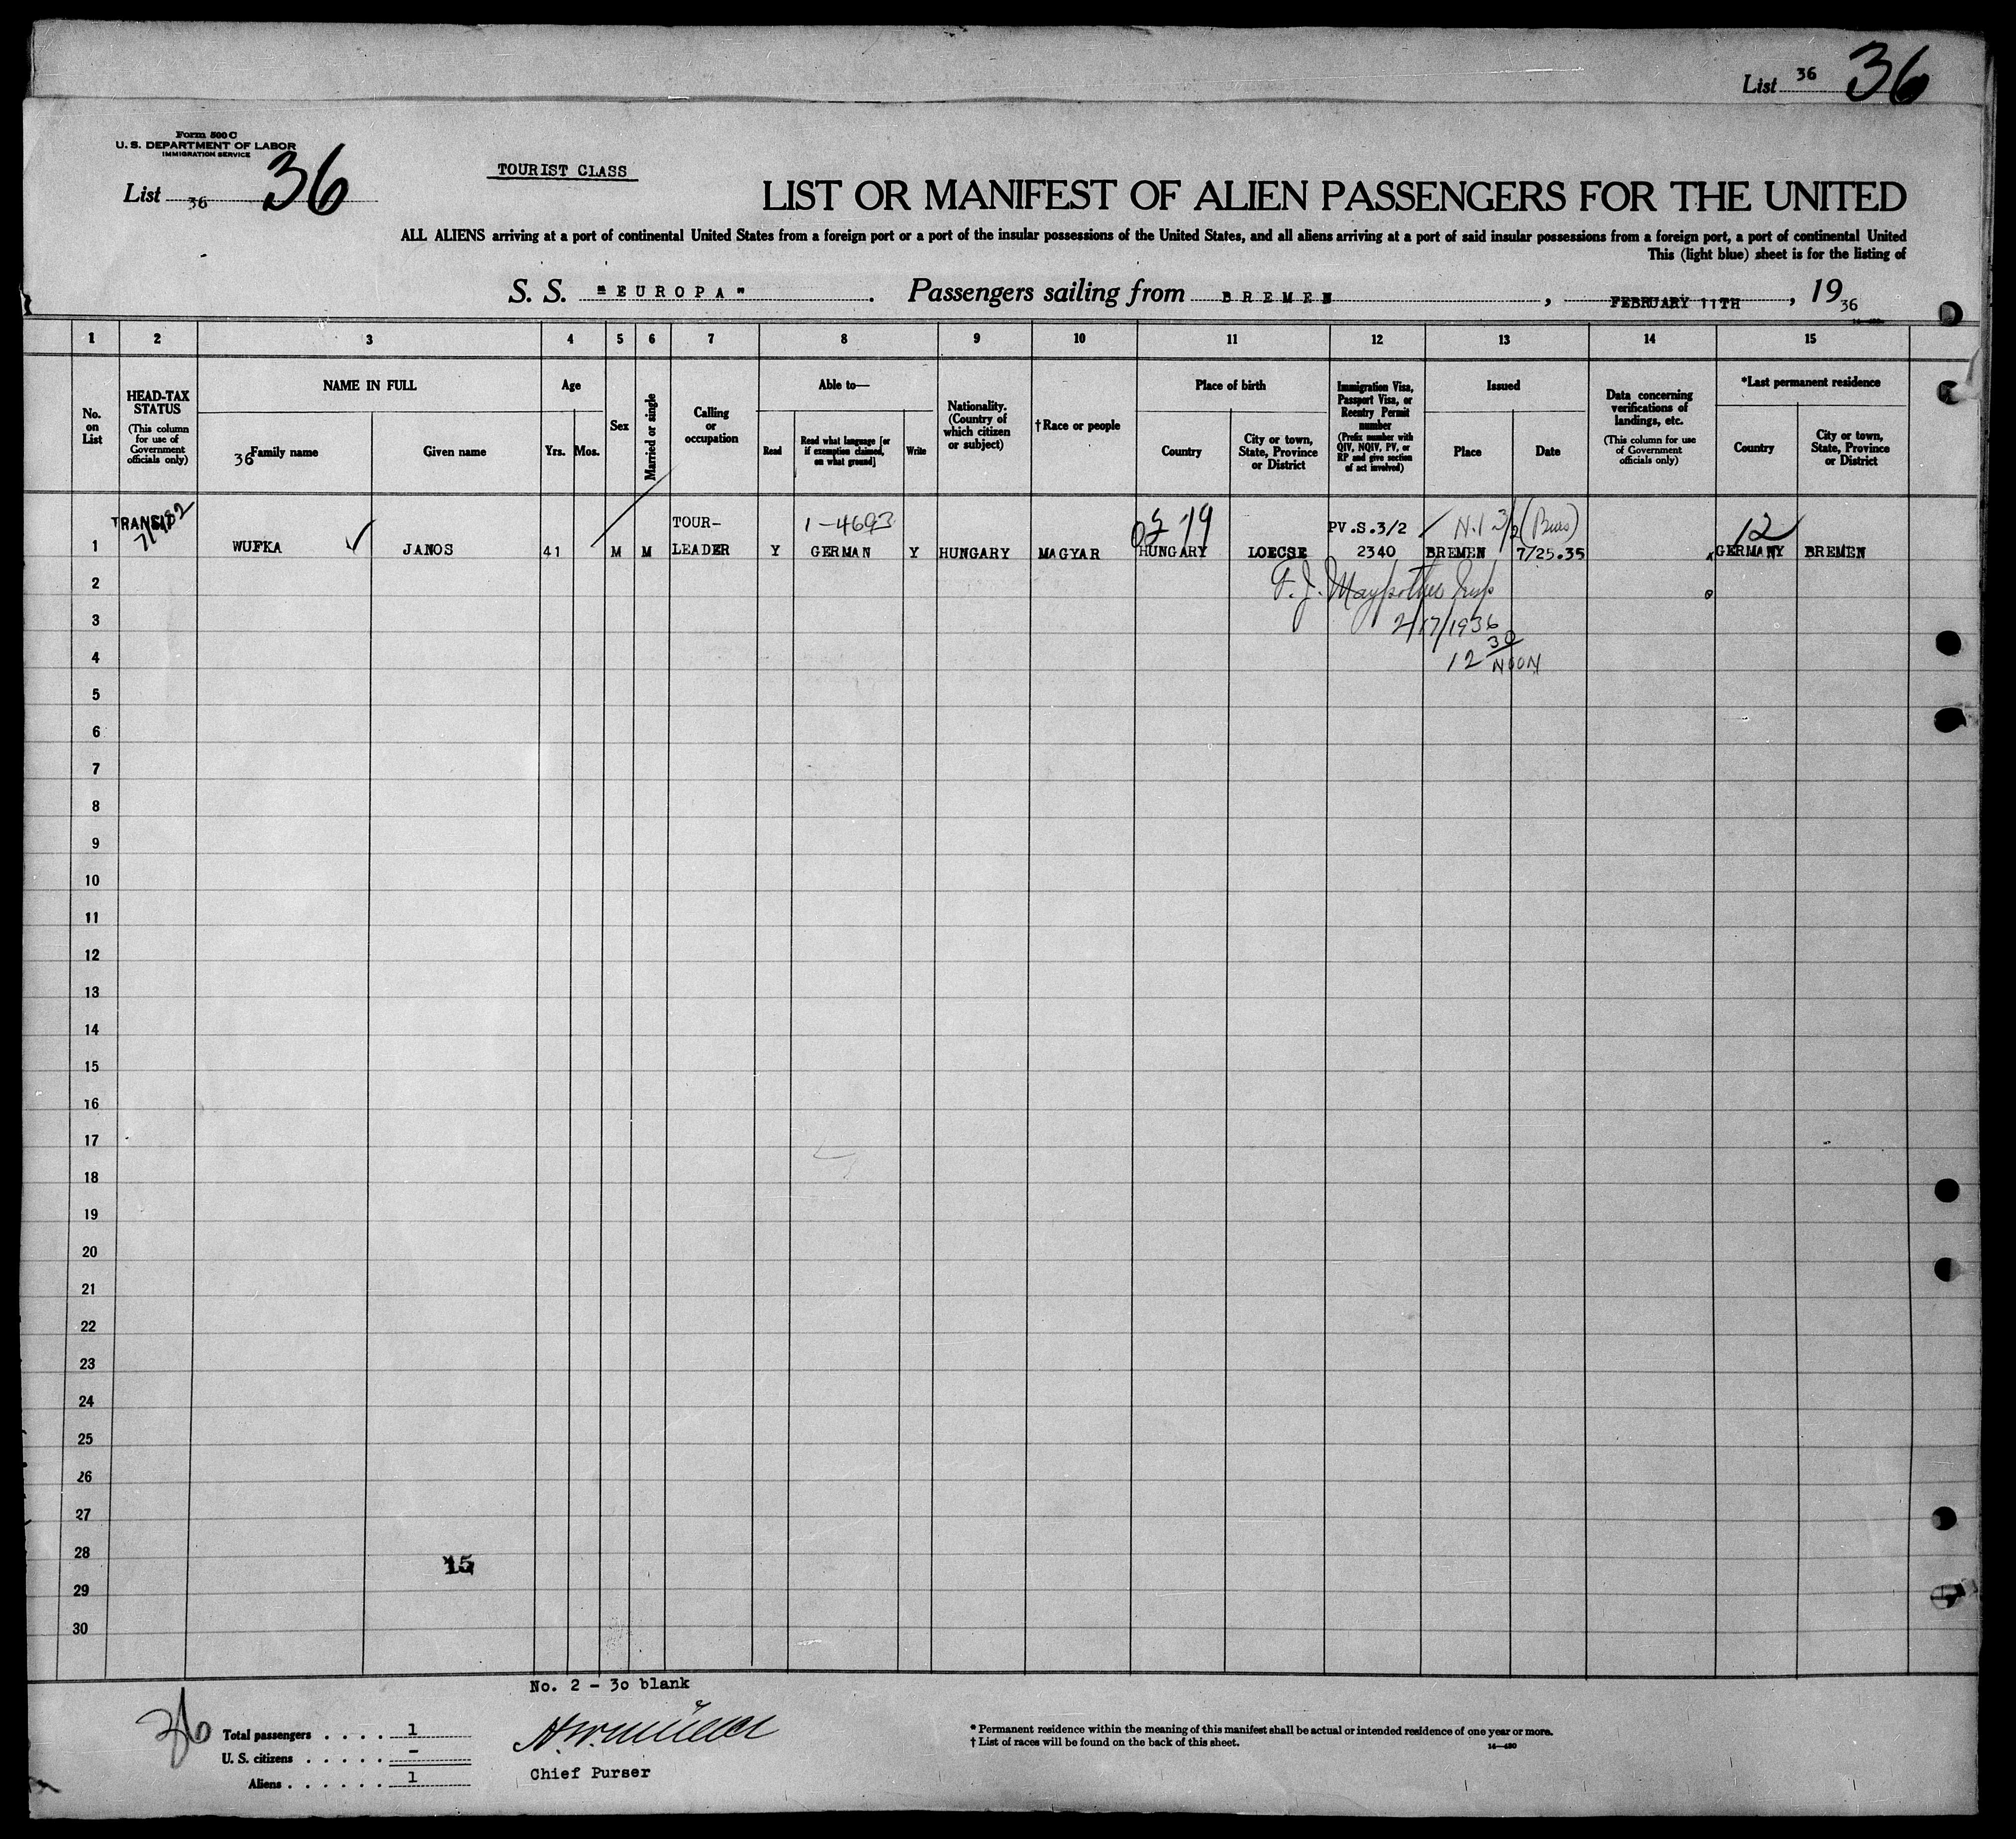 List 36 36
Form 500 C
U. S. DEPARTMENT OF LABOR
IMMIGRATION SERVICE
List 36 36
TOURIST CLASS
LIST OR MANIFEST OF ALIEN PASSENGERS FOR THE UNITED
ALL ALIENS arriving at a port of continental United States from a foreign port or a port of the insular possessions of the United States, and all aliens arriving at a port of said insular possessions from a foreign port, a port of continental United
This (light blue) sheet is for the listing of
S. S. "EUROPA". Passengers sailing from BREMEN, FEBRUARY 11TH, 19 36
1 2 3 4 5 6 7 8 9 10 11 12 13 14 15
No. on List
HEAD-TAX STATUS
(This column for use of Government officials only)
NAME IN FULL
36 Family name
Given name
Age
Yrs. Mos.
Sex
Married or single
Calling or occupation
Able to—
Read
Read what language [or if exemption claimed, on what ground]
Write
Nationality. (Country of which citizen or subject)
†Race or people
Place of birth
Country
City or town, State, Province or District
Immigration Visa, Passport Visa, or Reentry Permit number
(Prefix number with QIV, NQIV, PV, or RP and give section of act involved)
Issued
Place
Date
Data concerning verifications of landings, etc.
(This column for use of Government officials only)
*Last permanent residence
Country
City or town, State, Province or District
TRANSIT TOUR- 1-4693 19 PV.S.3/2 12
1 WUFKA JANOS 41 M M LEADER Y GERMAN Y HUNGARY MAGYAR HUNGARY LOECSE 2340 BREMEN 7/25.35 GERMANY BREMEN
2
3 2/17/1936
4 12 30 NOON
5
6
7
8
9
10
11
12
13
14
15
16
17
18
19
20
21
22
23
24
25
26
27
28 15
29
30
No. 2 - 30 blank
36
Total passengers . . . . 1
U. S. citizens . . . . . -
Aliens . . . . . . 1
Chief Purser
* Permanent residence within the meaning of this manifest shall be actual or intended residence of one year or more.
† List of races will be found on the back of this sheet.
14—480